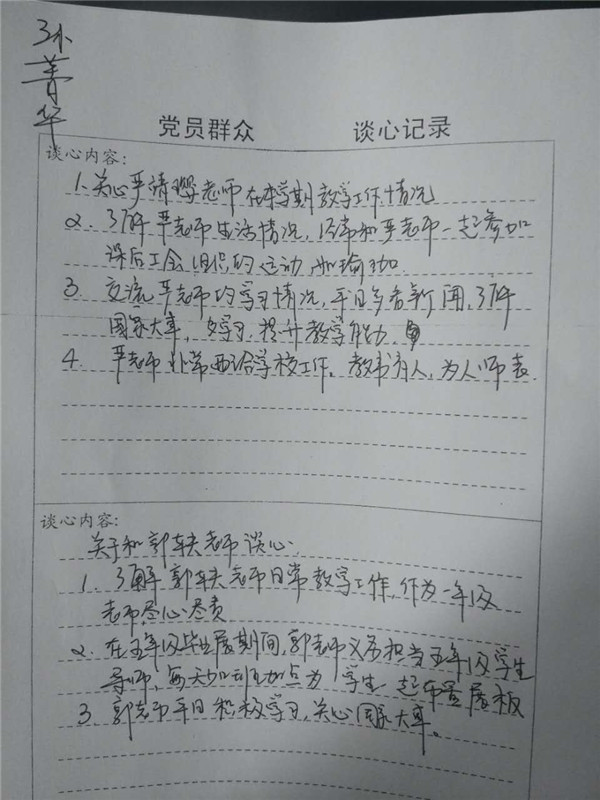 孙菁华
党员群众 谈心记录
谈心内容:
1. 关心严婧老师在本学期教学工作情况
2. 了解严老师生活情况,经常和严老师一起参加
课后工会组织的运动,如瑜珈.
3. 交流严老师的学习情况,平日多看新闻,了解
国家大事,多学习,提升教学能力.
4. 严老师非常配合学校工作。教书育人,为人师表.
谈心内容:
关于和郭轶老师谈心.
1. 了解郭轶老师日常教学工作,作为一年级
老师尽心尽责
2. 在五年级毕业展期间,郭老师又承担当五年级学生
导师,每天加班加点为学生一起布置展板
3. 郭老师平日积极学习,关心国家大事。